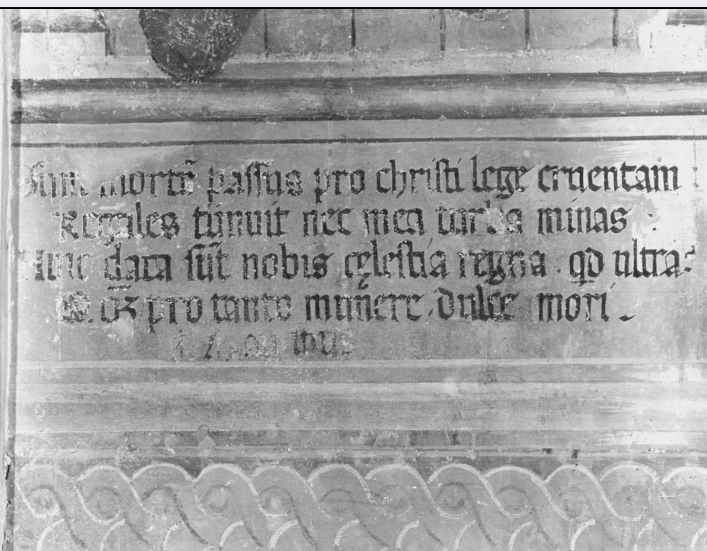 Sum mortē passus pro christi lege cruentam
Regales timuit nec mea turba minas
Nunc data sūt nobis cęlestia regna . qd ultra?
O. oīs pro tanto munere . dulce mori